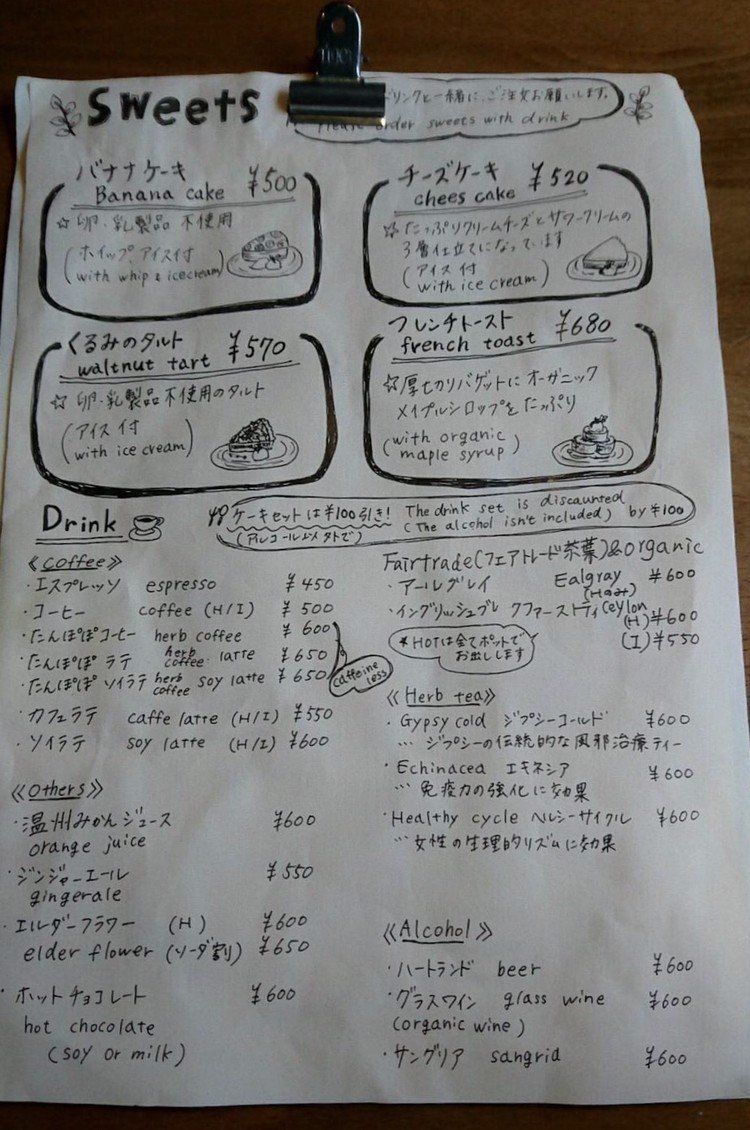 Sweets
リンクと一緒に、ご注文お願いします。
Please order sweets with drink
バナナケーキ ¥500
Banana cake
☆卵・乳製品不使用
(ホイップ、アイス付
with whip & icecream)
チーズケーキ ¥520
chees cake
☆たっぷりクリームチーズとサワークリームの
3層仕立てになっています
(アイス付
with ice cream)
くるみのタルト ¥570
waltnut tart
☆卵・乳製品不使用のタルト
(アイス付
with ice cream)
フレンチトースト ¥680
french toast
☆厚切りバゲットにオーガニック
メイプルシロップをたっぷり
(with organic
maple syrup)
Drink
ケーキセットは¥100引き!
(アルコール以外で)
The drink set is discaunted
(The alcohol isn't included) by ¥100
《coffee》
・エスプレッソ espresso ¥450
・コーヒー coffee (H/I) ¥500
・たんぽぽコーヒー herb coffee ¥600
・たんぽぽラテ herb coffee latte ¥650
・たんぽぽソイラテ herb coffee soy latte ¥650
caffeine less
・カフェラテ caffe latte (H/I) ¥550
・ソイラテ soy latte (H/I) ¥600
《others》
・温州みかんジュース ¥600
orange juice
・ジンジャーエール ¥550
gingerale
・エルダーフラワー (H) ¥600
elder flower (ソーダ割) ¥650
・ホットチョコレート ¥600
hot chocolate
(soy or milk)
Fairtrade(フェアトレード茶葉)&organic
・アールグレイ Ealgray ¥600
(Hのみ)
・イングリッシュブレクファーストティ Ceylon
(H) ¥600
(I) ¥550
*HOTは全てポットで
お出しします
《Herb tea》
・Gypsy cold ジプシーコールド ¥600
… ジプシーの伝統的な風邪治療ティー
・Echinacea エキネシア ¥600
… 免疫力の強化に効果
・Healthy cycle ヘルシーサイクル ¥600
… 女性の生理的リズムに効果
《Alcohol》
・ハートランド beer ¥600
・グラスワイン glass wine ¥600
(organic wine)
・サングリア sangrid ¥600